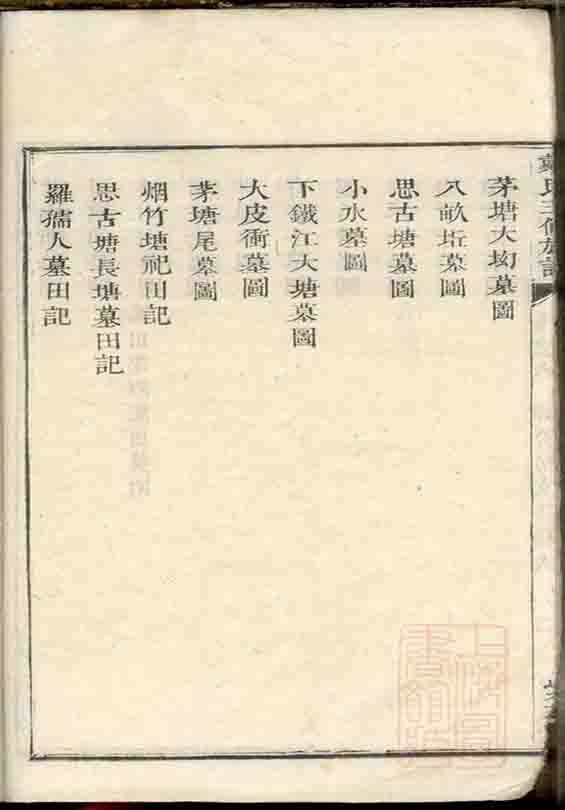 茅塘大坳墓圖
八畝坵墓圖
思古塘墓圖
小水墓圖
下鐵江大塘墓圖
大皮衝墓圖
茅塘尾墓圖
烟竹塘祀田記
思古塘長塘墓田記
羅孺人墓田記